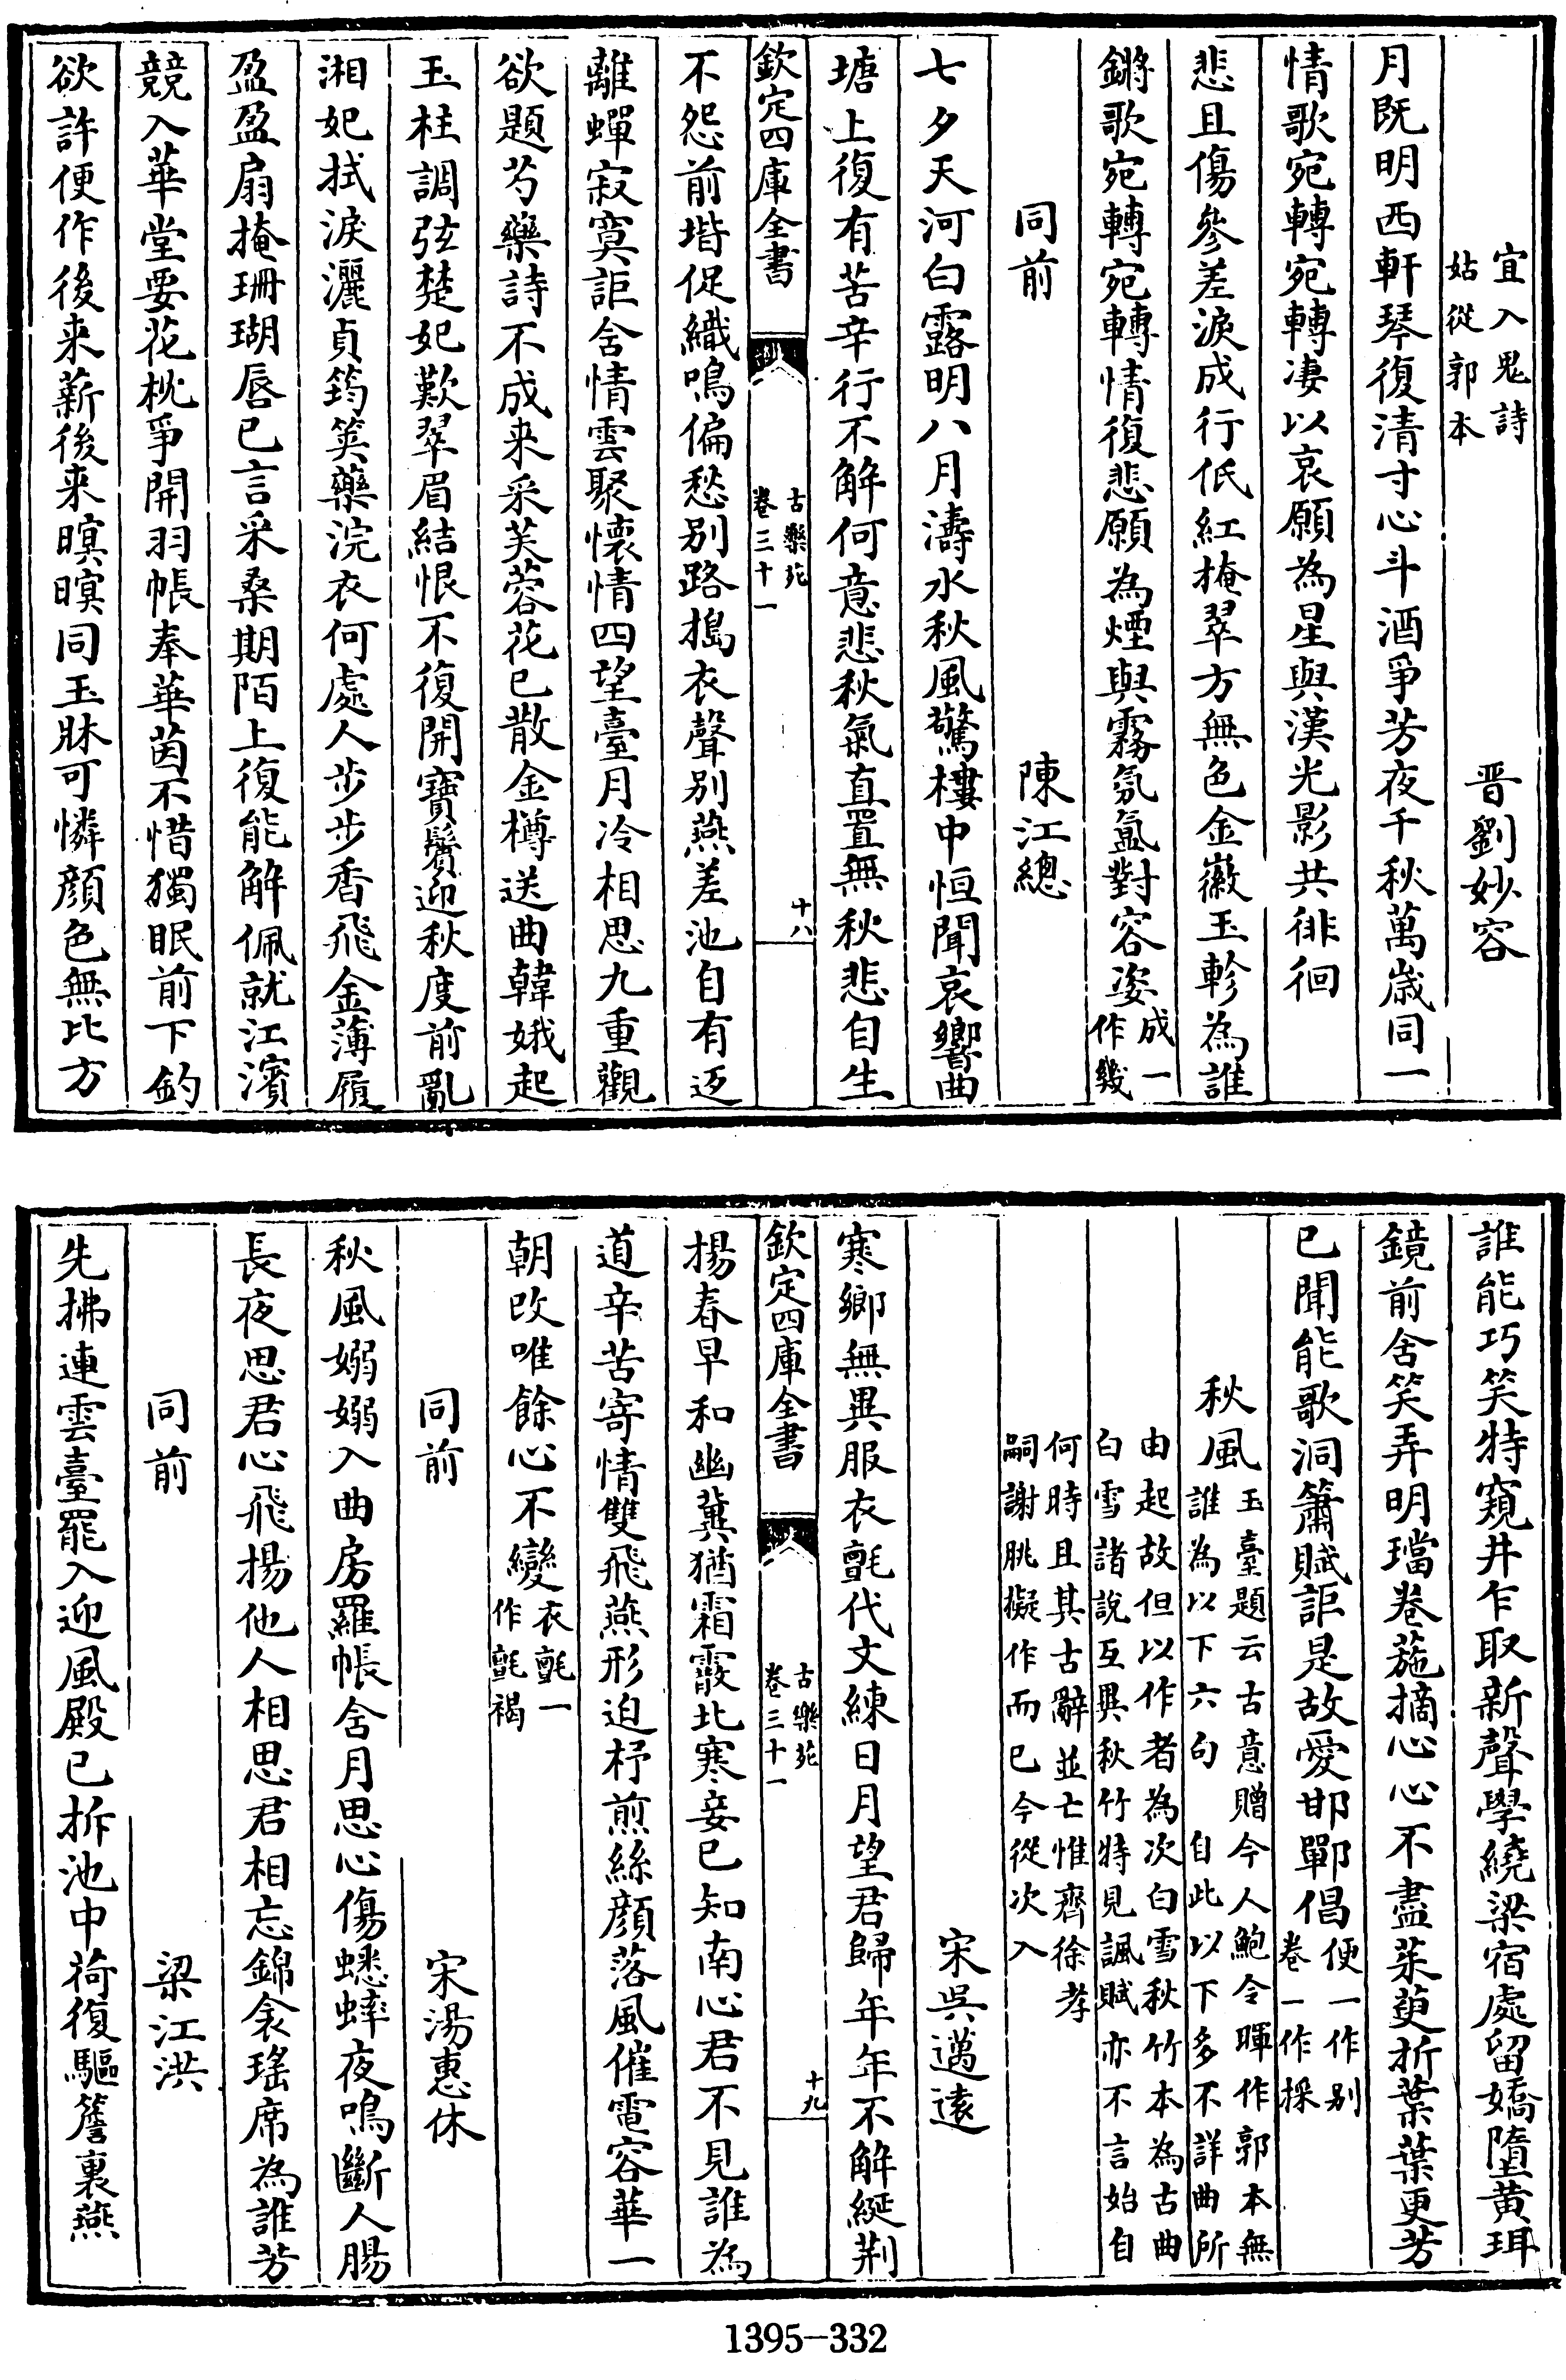 宜入鬼詩
姑從郭本
晋劉妙容
月既明西軒琴復清寸心斗酒爭芳夜千秋萬歲同一
情歌宛轉宛轉凄以哀願為星與漢光影共徘徊
悲且傷參差淚成行低紅掩翠方無色金徽玉軫為誰
鏘歌宛轉宛轉情復悲願為煙與霧氛氳對容姿成一
作幾
同前　陳江總
七夕天河白露明八月濤水秋風驚樓中恒聞哀響曲
塘上復有苦辛行不解何意悲秋氣直置無秋悲自生
欽定四庫全書
古樂苑
卷三十一
十八
不怨前堦促織鳴偏愁别路搗衣聲别燕差池自有返
離蟬寂寞詎含情雲聚懷情四望臺月冷相思九重觀
欲題芍藥詩不成来采芙蓉花已散金樽送曲韓娥起
玉柱調弦楚妃歎翠眉結恨不復開寶鬢迎秋度前亂
湘妃拭淚灑貞筠筴藥浣衣何處人步步香飛金薄履
盈盈扇掩珊瑚唇已言采桑期陌上復能解佩就江濱
競入華堂要花枕爭開羽帳奉華茵不惜獨眠前下釣
欲許便作後来薪後来暝暝同玉牀可憐顔色無比方
誰能巧笑特窺井乍取新聲學繞梁宿處留嬌墮黄珥
鏡前含笑弄明璫卷葹摘心心不盡茱萸折葉葉更芳
已聞能歌洞簫賦詎是故愛邯鄲倡便一作别
卷一作採
秋風玉臺題云古意贈今人鮑令暉作郭本無
誰為以下六句　自此以下多不詳曲所
由起故但以作者為次白雪秋竹本為古曲
白雪諸説互異秋竹特見諷賦亦不言始自
何時且其古辭並亡惟齊徐孝
嗣謝朓擬作而已今從次入
宋吳邁遠
寒鄉無異服衣氈代文練日月望君歸年年不解綖荆
欽定四庫全書
古樂苑
卷三十一
十九
揚春早和幽冀猶霜霰北寒妾已知南心君不見誰為
道辛苦寄情雙飛燕形迫杼煎絲顔落風催電容華一
朝改唯餘心不變衣氈一
作氈褐
同前　宋湯惠休
秋風嫋嫋入曲房羅帳含月思心傷蟋蟀夜鳴斷人腸
長夜思君心飛揚他人相思君相忘錦衾瑤席為誰芳
同前　梁江洪
先拂連雲臺罷入迎風殿已拆池中荷復驅簷裏燕
1395-332